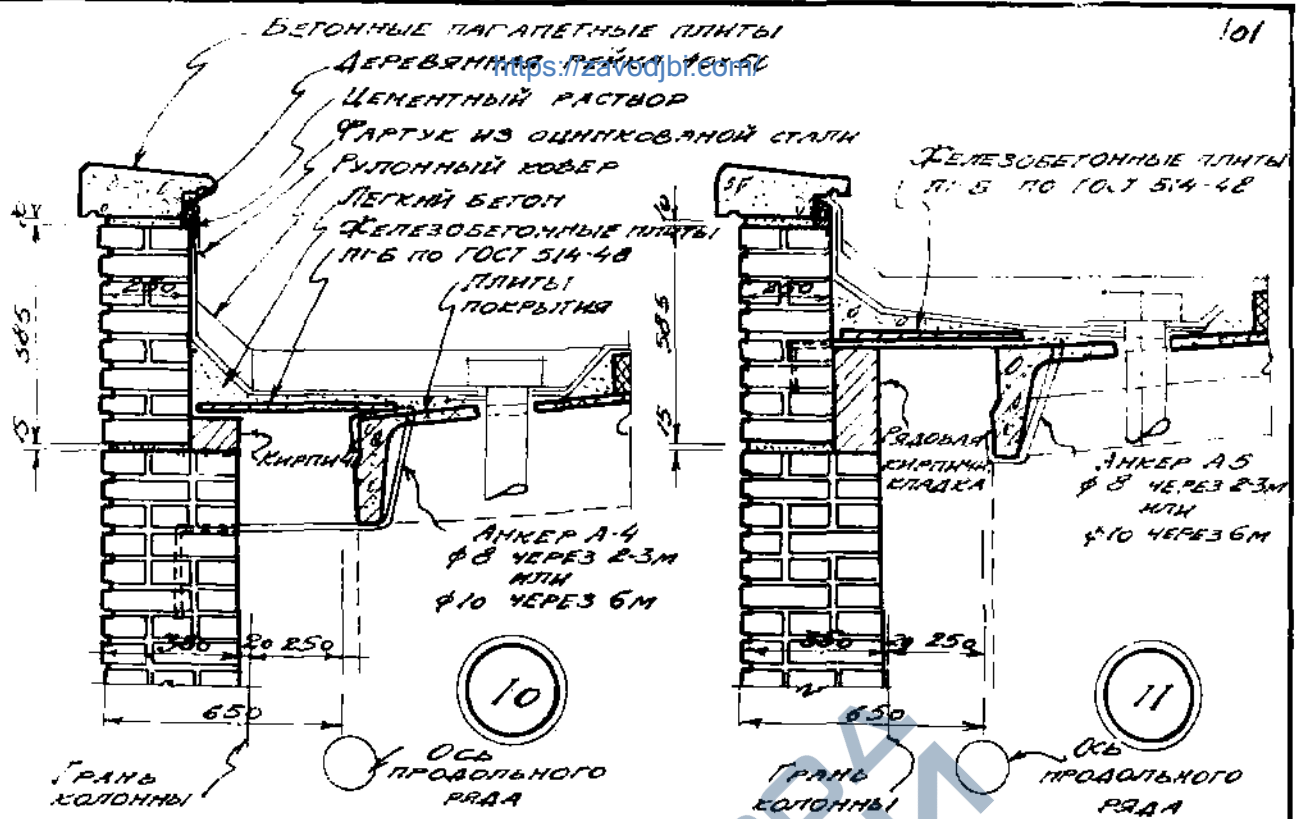 101
БЕТОННЫЕ ПАРАПЕТНЫЕ ПЛИТЫ
ДЕРЕВЯННАЯ РЕЙКА
https://zavodjbi.com/
ЦЕМЕНТНЫЙ РАСТВОР
ФАРТУК ИЗ ОЦИНКОВАНОЙ СТАЛИ
РУЛОННЫЙ КОВЕР
ЛЕГКИЙ БЕТОН
ЖЕЛЕЗОБЕТОННЫЕ ПЛИТЫ
ПО ГОСТ 514-48
ПЛИТЫ
ПОКРЫТИЯ
КИРПИЧ
АНКЕР А-4
φ8 ЧЕРЕЗ 2-3М
ИЛИ
φ10 ЧЕРЕЗ 6М
585
15
380 20 250
650
10
ГРАНЬ
КОЛОННЫ
ОСЬ
ПРОДОЛЬНОГО
РЯДА
ЖЕЛЕЗОБЕТОННЫЕ ПЛИТЫ
ПО ГОСТ 514-48
10
585
15
РЯДОВАЯ
КИРПИЧН.
КЛАДКА
АНКЕР А5
φ8 ЧЕРЕЗ 2-3М
ИЛИ
φ10 ЧЕРЕЗ 6М
250
650
11
ГРАНЬ
КОЛОННЫ
ОСЬ
ПРОДОЛЬНОГО
РЯДА